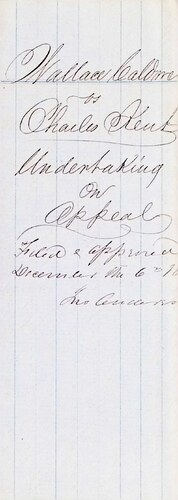 Wallace Caldwe
vs
Charles Kent
Undertaking
on
Appeal
Filed & approved
December the 6th 18
Jno Anderson